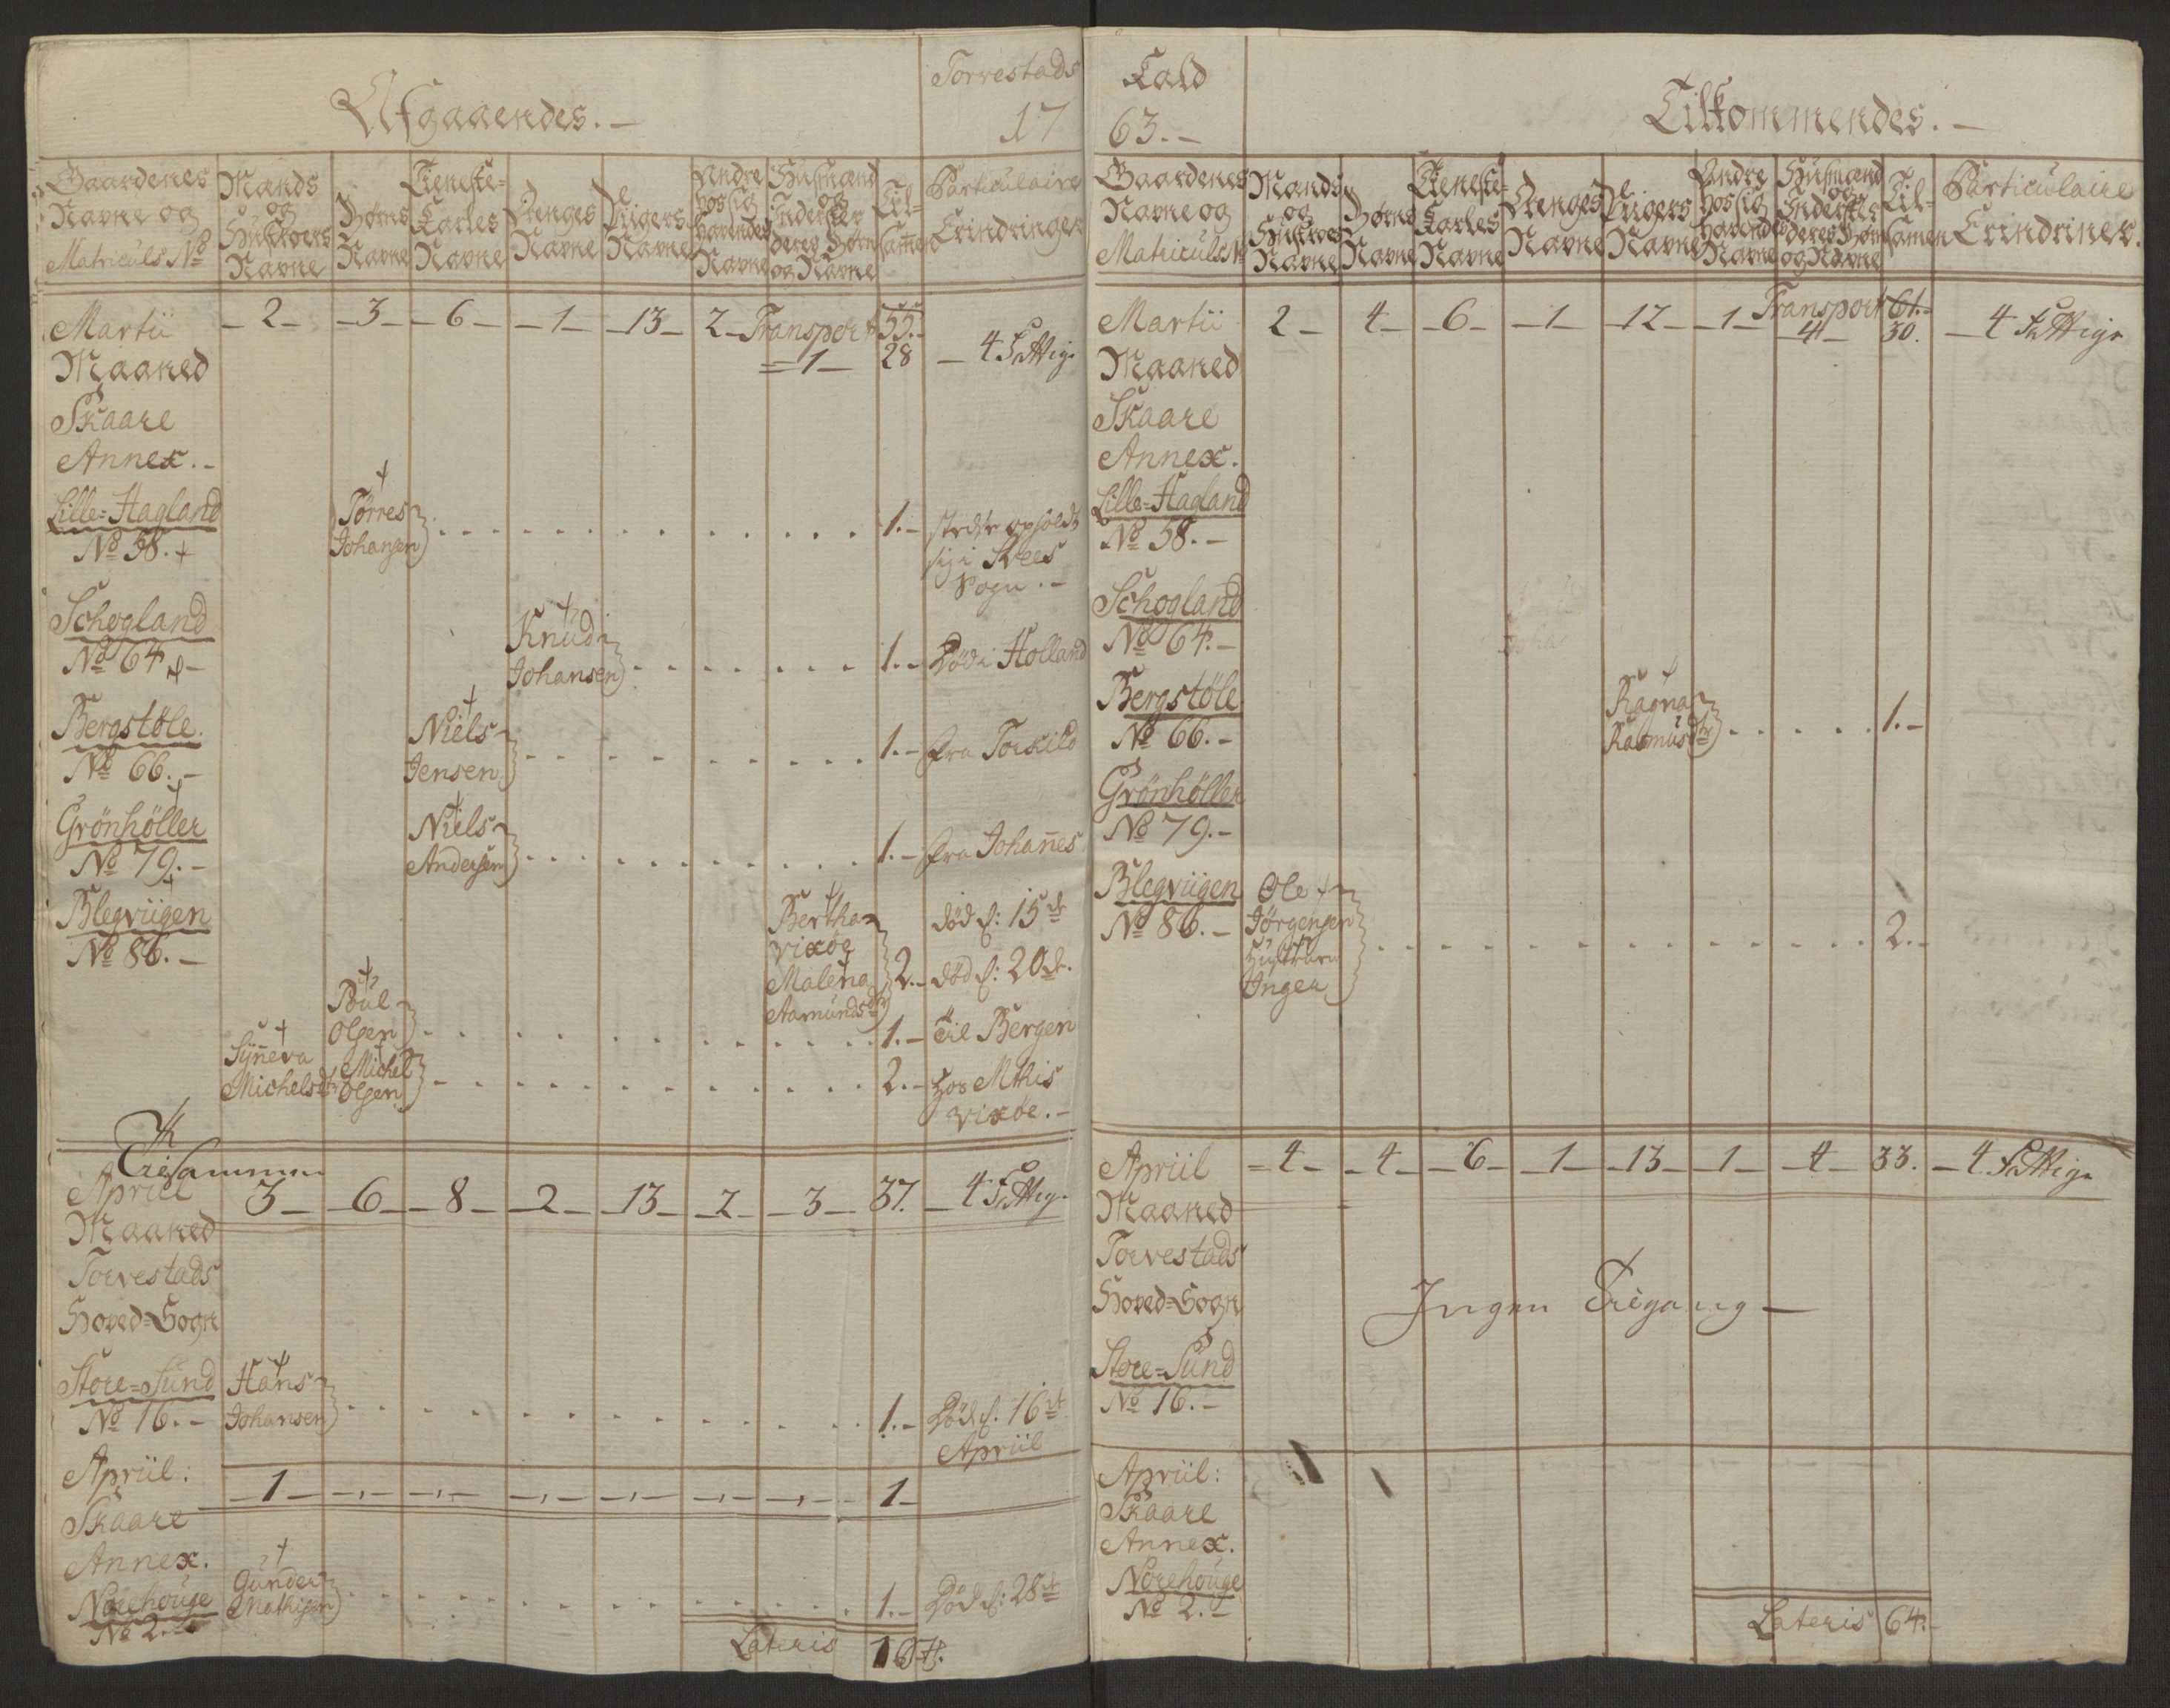 Afgaaendes.-
Torvestads
17
Gaardenes Navne og Matriculs No
Mænds og Hustroers Navne
Børns Navne
Tieneste-Karles Navne
Drenges Navne
Piigers Navne
Andre hos sig havendes Navne
Husmænd og Inderster deres Børn og Navne
Til-sammen
Particulaire Erindringer
Martii - 2 - - 3 - - 6 - - 1 - - 13 - 2 - Transport 55.-
Maaned = 1 - 28 - 4 Fattige
Skaare
Annex.-
Lille-Hagland Tørres
No 58. Johansen 1.- sig i Skees
Sogn.-
Schogland Knud
No 64 Johansen 1.- Død i Holland
Bergstøle Niels
No 66.- Jensen 1.- fra Torkild
Grönhöller Niels
No 79.- Andersen 1.- fra Johannes
Blegviigen Bertha død d: 15de
No 86.- Vixøe
Malena 2.- død d: 20de.
Aamundsdr
Poul
Olsen 1.- til Bergen
Synneva Michel
Michelsdr Olsen 2.- hos Mthis
Vixøe.-
Tilsammen
Apriil 3 - - 6 - - 8 - - 2 - - 13 - - 2 - - 3 - 37. - 4 Fattige
Maaned
Torvestads
Hoved-Sogn
Store-Sund Hans
No 16.- Johansen 1.- Død d. 16de
Apriil
Apriil: - 1 - 1 -
Skaare
Annex.
Norehouge Gunder
No 2.- Mathisen 1.- Død d: 28de
Lateris 67.
Kald
63.-
Tilkommendes.-
Gaardenes Navne og Matriculs No
Mænds og Hustroes Navne
Børns Navne
Tieneste-Karles Navne
Drenges Navne
Piigers Navne
Andre hos sig havendes Navne
Husmænd og Inderster deres Børn og Navne
Til-samen
Particulaire Erindriner.
Martii 2 - - 4 - - 6 - - 1 - - 12 - - 1 - Transport 61.-
Maaned 4 - 30. - 4 Fattige
Skaare
Annex.
Lille-Hagland
No 58.-
Schogland
No 64.-
Bergstøle Ragna
No 66.- Rasmusdtr 1.-
Grönhöller
No 79.-
Blegviigen Ole
No 86.- Jörgensen
Hustruen 2.-
Inger
Apriil - 4 - - 4 - - 6 - - 1 - - 13 - - 1 - - 4 - 33. - 4 Fattige
Maaned
Torvestads
Hoved-Sogn Ingen Tilgang -
Store-Sund
No 16.-
Apriil:
Skaare
Annex.
Norehouge
No 2.-
Lateris 64.-